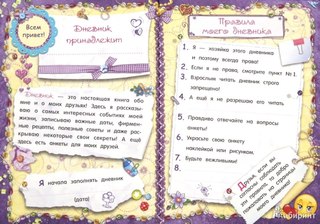 Всем
привет!
Дневник
принадлежит
Дневник — это настоящая книга обо
мне и о моих друзьях! Здесь я расскажу
о самых интересных событиях моей
жизни, запишу важные даты, фирмен-
ные рецепты, полезные советы и даже рас-
крываю некоторые свои секреты! А ещё
здесь есть анкеты для моих друзей.
Я начала заполнять дневник
(дата)
Правила
моего дневника
1. Я — хозяйка этого дневника
и поэтому всегда права!
2. Если я не права, смотрите пункт № 1.
3. Взрослым читать дневник строго
запрещено!
4. А ещё я не разрешаю его читать
5. Правдиво отвечайте на вопросы
анкеты!
6. Украсьте свою анкету
наклейкой или рисунком.
7. Будьте вежливыми!
8.
Друзья, если вы
готовы соблюдать
эти правила, то добро
пожаловать в анкеты
моего дневника!
Лабиринт